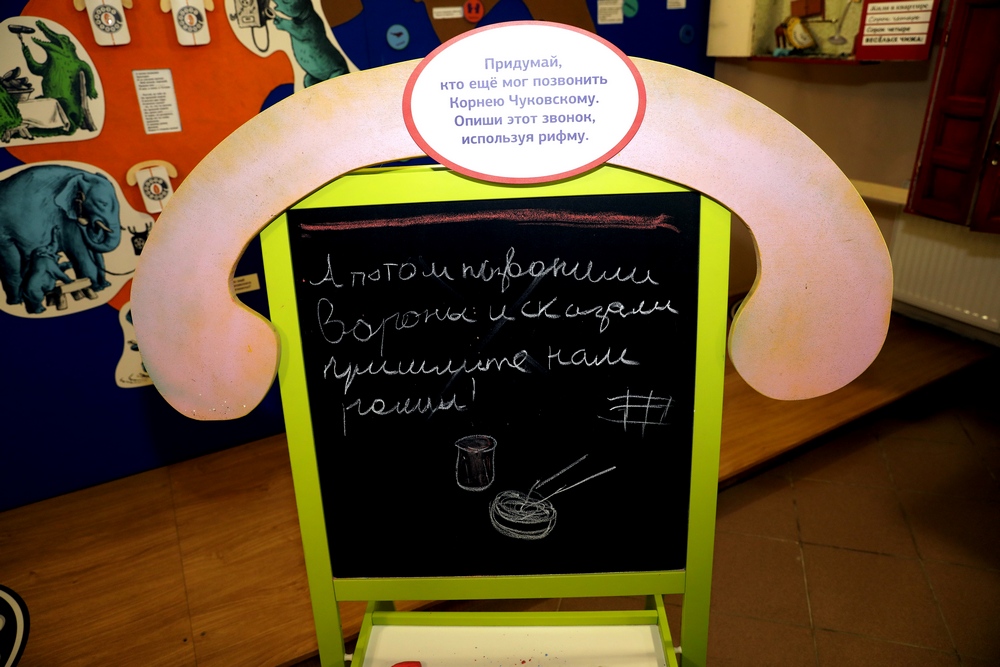 Жили в квартире
Сорок четыре
Сорок четыре
ВЕСЁЛЫХ ЧИЖА:
Придумай,
кто ещё мог позвонить
Корнею Чуковскому.
Опиши этот звонок,
используя рифму.
А потом позвонили
Вороны и сказали
пришлите нам
#